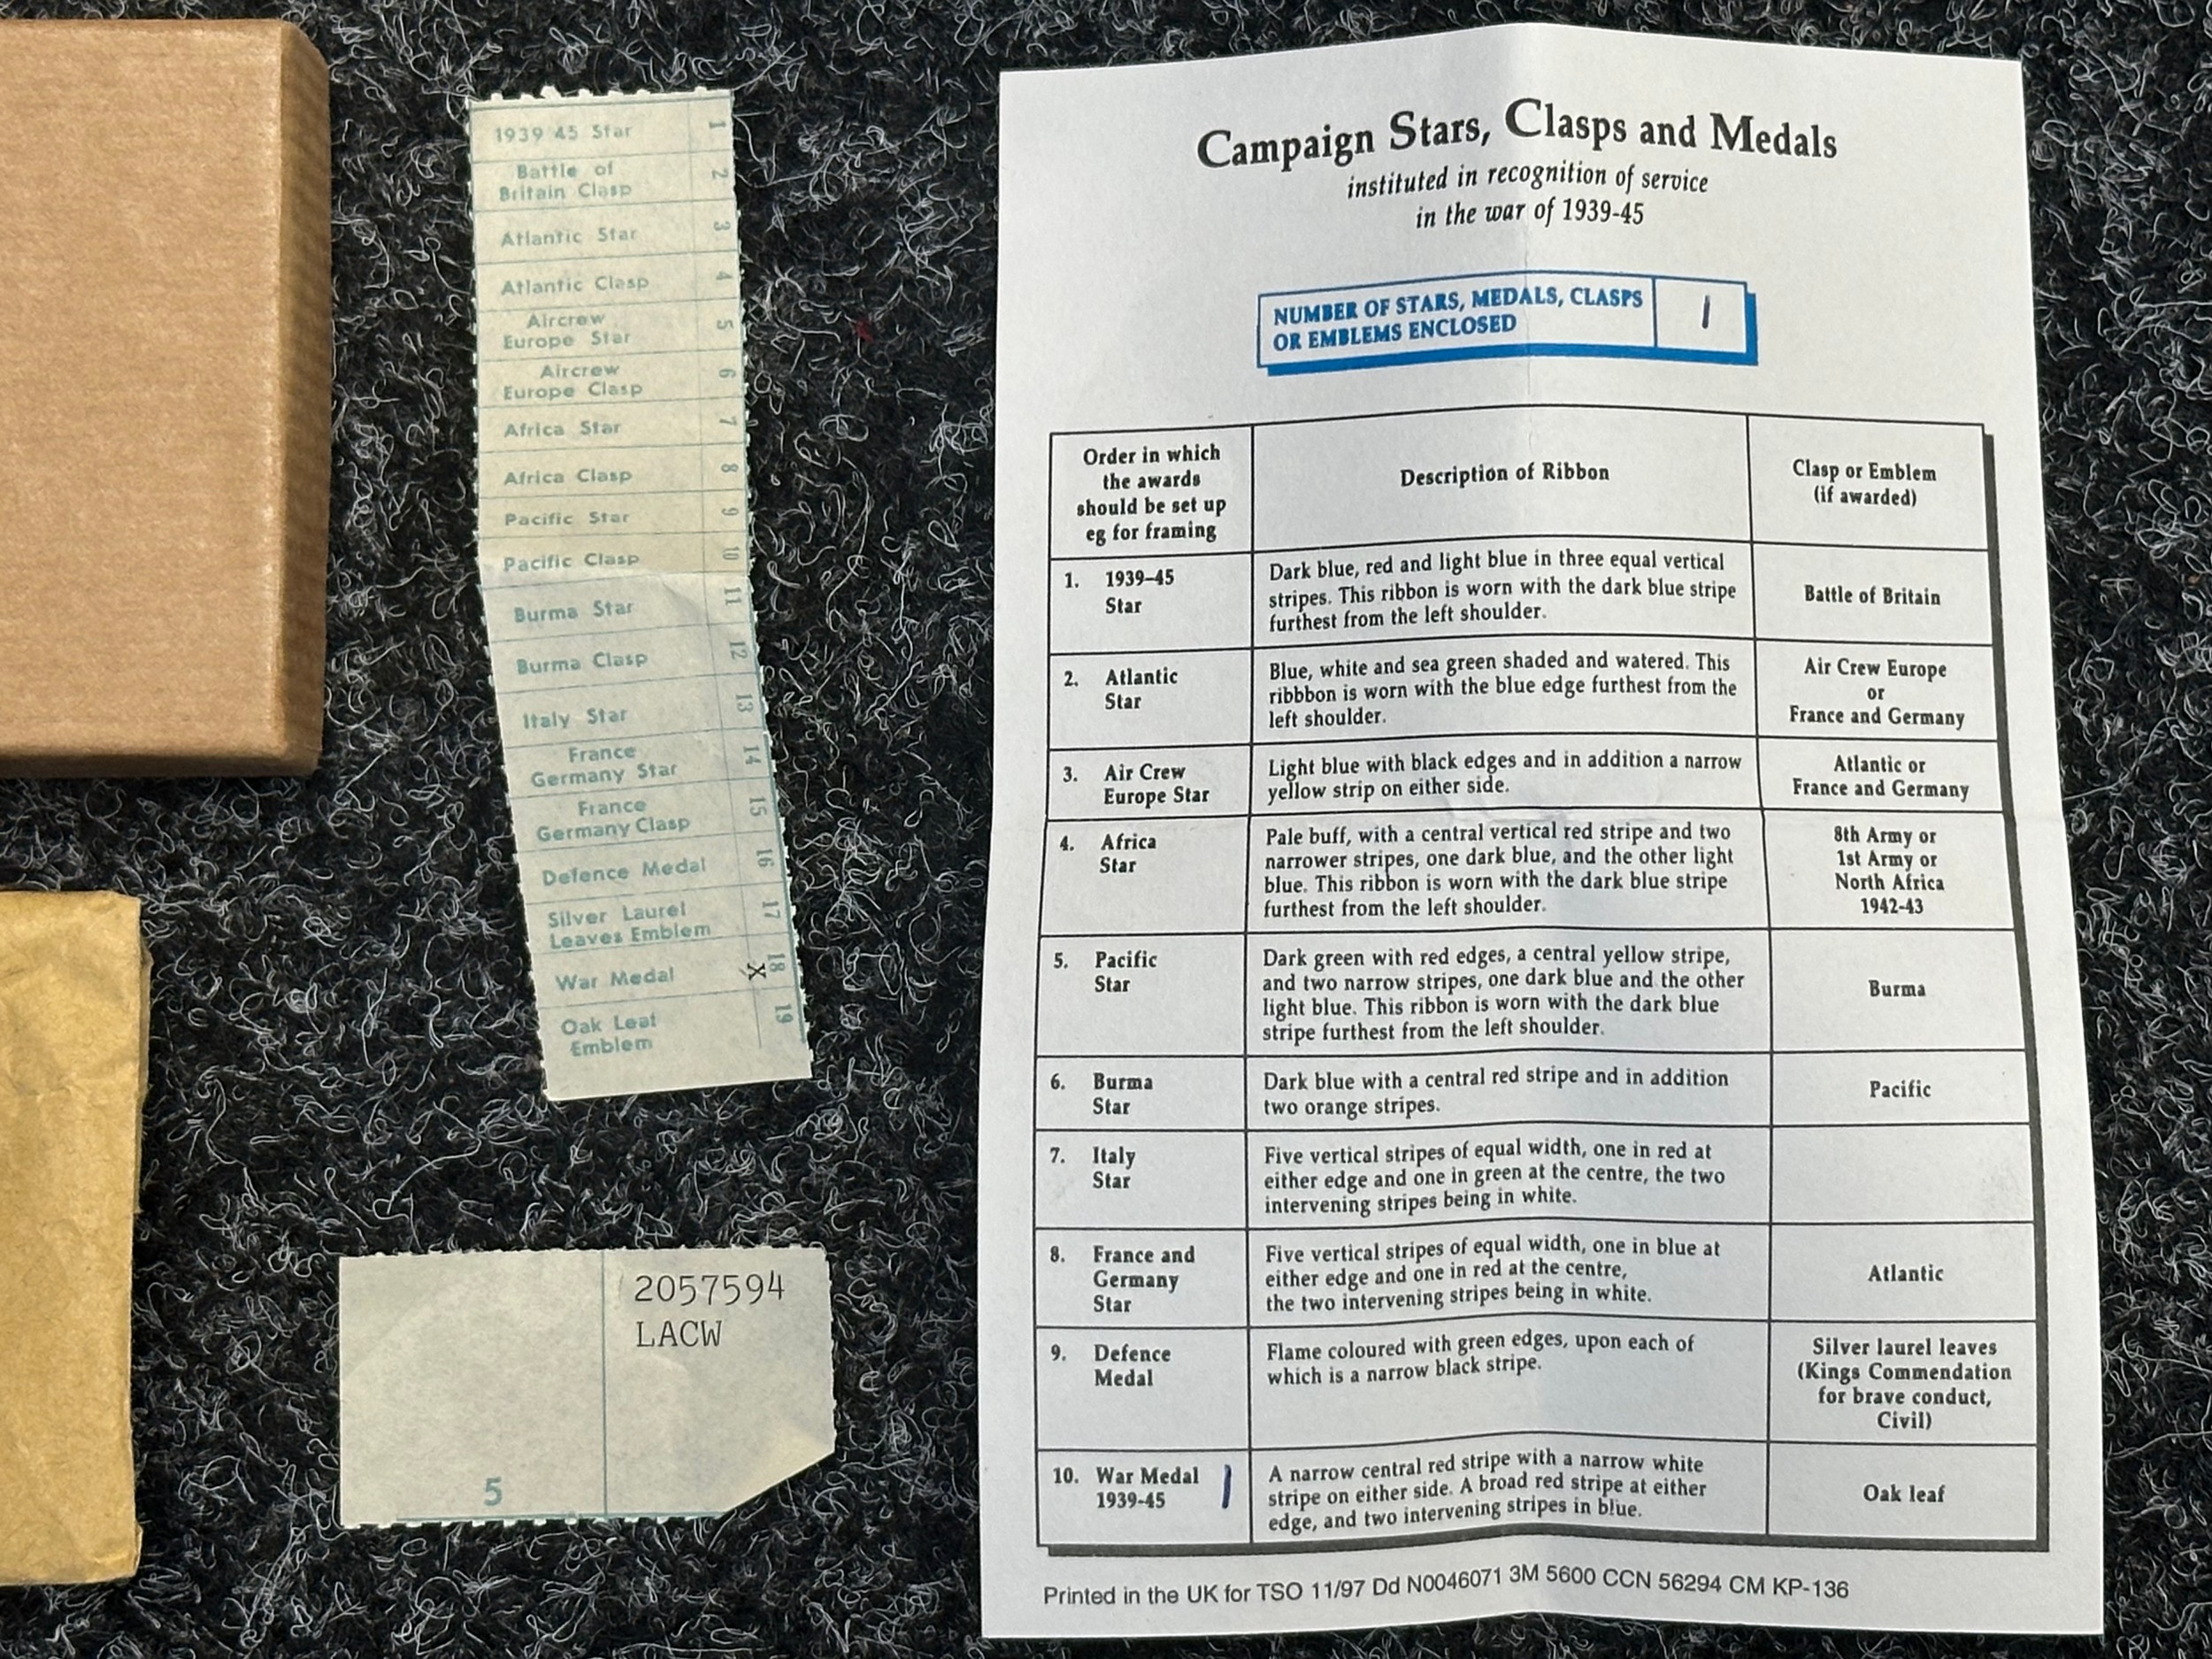 1939 45 Star 1
Battle of
Britain Clasp 2
Atlantic Star 3
Atlantic Clasp 4
Aircrew
Europe Star 5
Aircrew
Europe Clasp 6
Africa Star 7
Africa Clasp 8
Pacific Star 9
Pacific Clasp 10
Burma Star 11
Burma Clasp 12
Italy Star 13
France
Germany Star 14
France
Germany Clasp 15
Defence Medal 16
Silver Laurel
Leaves Emblem 17
War Medal X 18
Oak Leaf
Emblem 19
2057594
LACW
5
Campaign Stars, Clasps and Medals
instituted in recognition of service
in the war of 1939-45
NUMBER OF STARS, MEDALS, CLASPS
OR EMBLEMS ENCLOSED
1
Order in which
the awards
should be set up
eg for framing
Description of Ribbon
Clasp or Emblem
(if awarded)
1. 1939–45
Star
Dark blue, red and light blue in three equal vertical
stripes. This ribbon is worn with the dark blue stripe
furthest from the left shoulder.
Battle of Britain
2. Atlantic
Star
Blue, white and sea green shaded and watered. This
ribbbon is worn with the blue edge furthest from the
left shoulder.
Air Crew Europe
or
France and Germany
3. Air Crew
Europe Star
Light blue with black edges and in addition a narrow
yellow strip on either side.
Atlantic or
France and Germany
4. Africa
Star
Pale buff, with a central vertical red stripe and two
narrower stripes, one dark blue, and the other light
blue. This ribbon is worn with the dark blue stripe
furthest from the left shoulder.
8th Army or
1st Army or
North Africa
1942-43
5. Pacific
Star
Dark green with red edges, a central yellow stripe,
and two narrow stripes, one dark blue and the other
light blue. This ribbon is worn with the dark blue
stripe furthest from the left shoulder.
Burma
6. Burma
Star
Dark blue with a central red stripe and in addition
two orange stripes.
Pacific
7. Italy
Star
Five vertical stripes of equal width, one in red at
either edge and one in green at the centre, the two
intervening stripes being in white.
8. France and
Germany
Star
Five vertical stripes of equal width, one in blue at
either edge and one in red at the centre,
the two intervening stripes being in white.
Atlantic
9. Defence
Medal
Flame coloured with green edges, upon each of
which is a narrow black stripe.
Silver laurel leaves
(Kings Commendation
for brave conduct,
Civil)
10. War Medal
1939-45
1
A narrow central red stripe with a narrow white
stripe on either side. A broad red stripe at either
edge, and two intervening stripes in blue.
Oak leaf
Printed in the UK for TSO 11/97 Dd N0046071 3M 5600 CCN 56294 CM KP-136